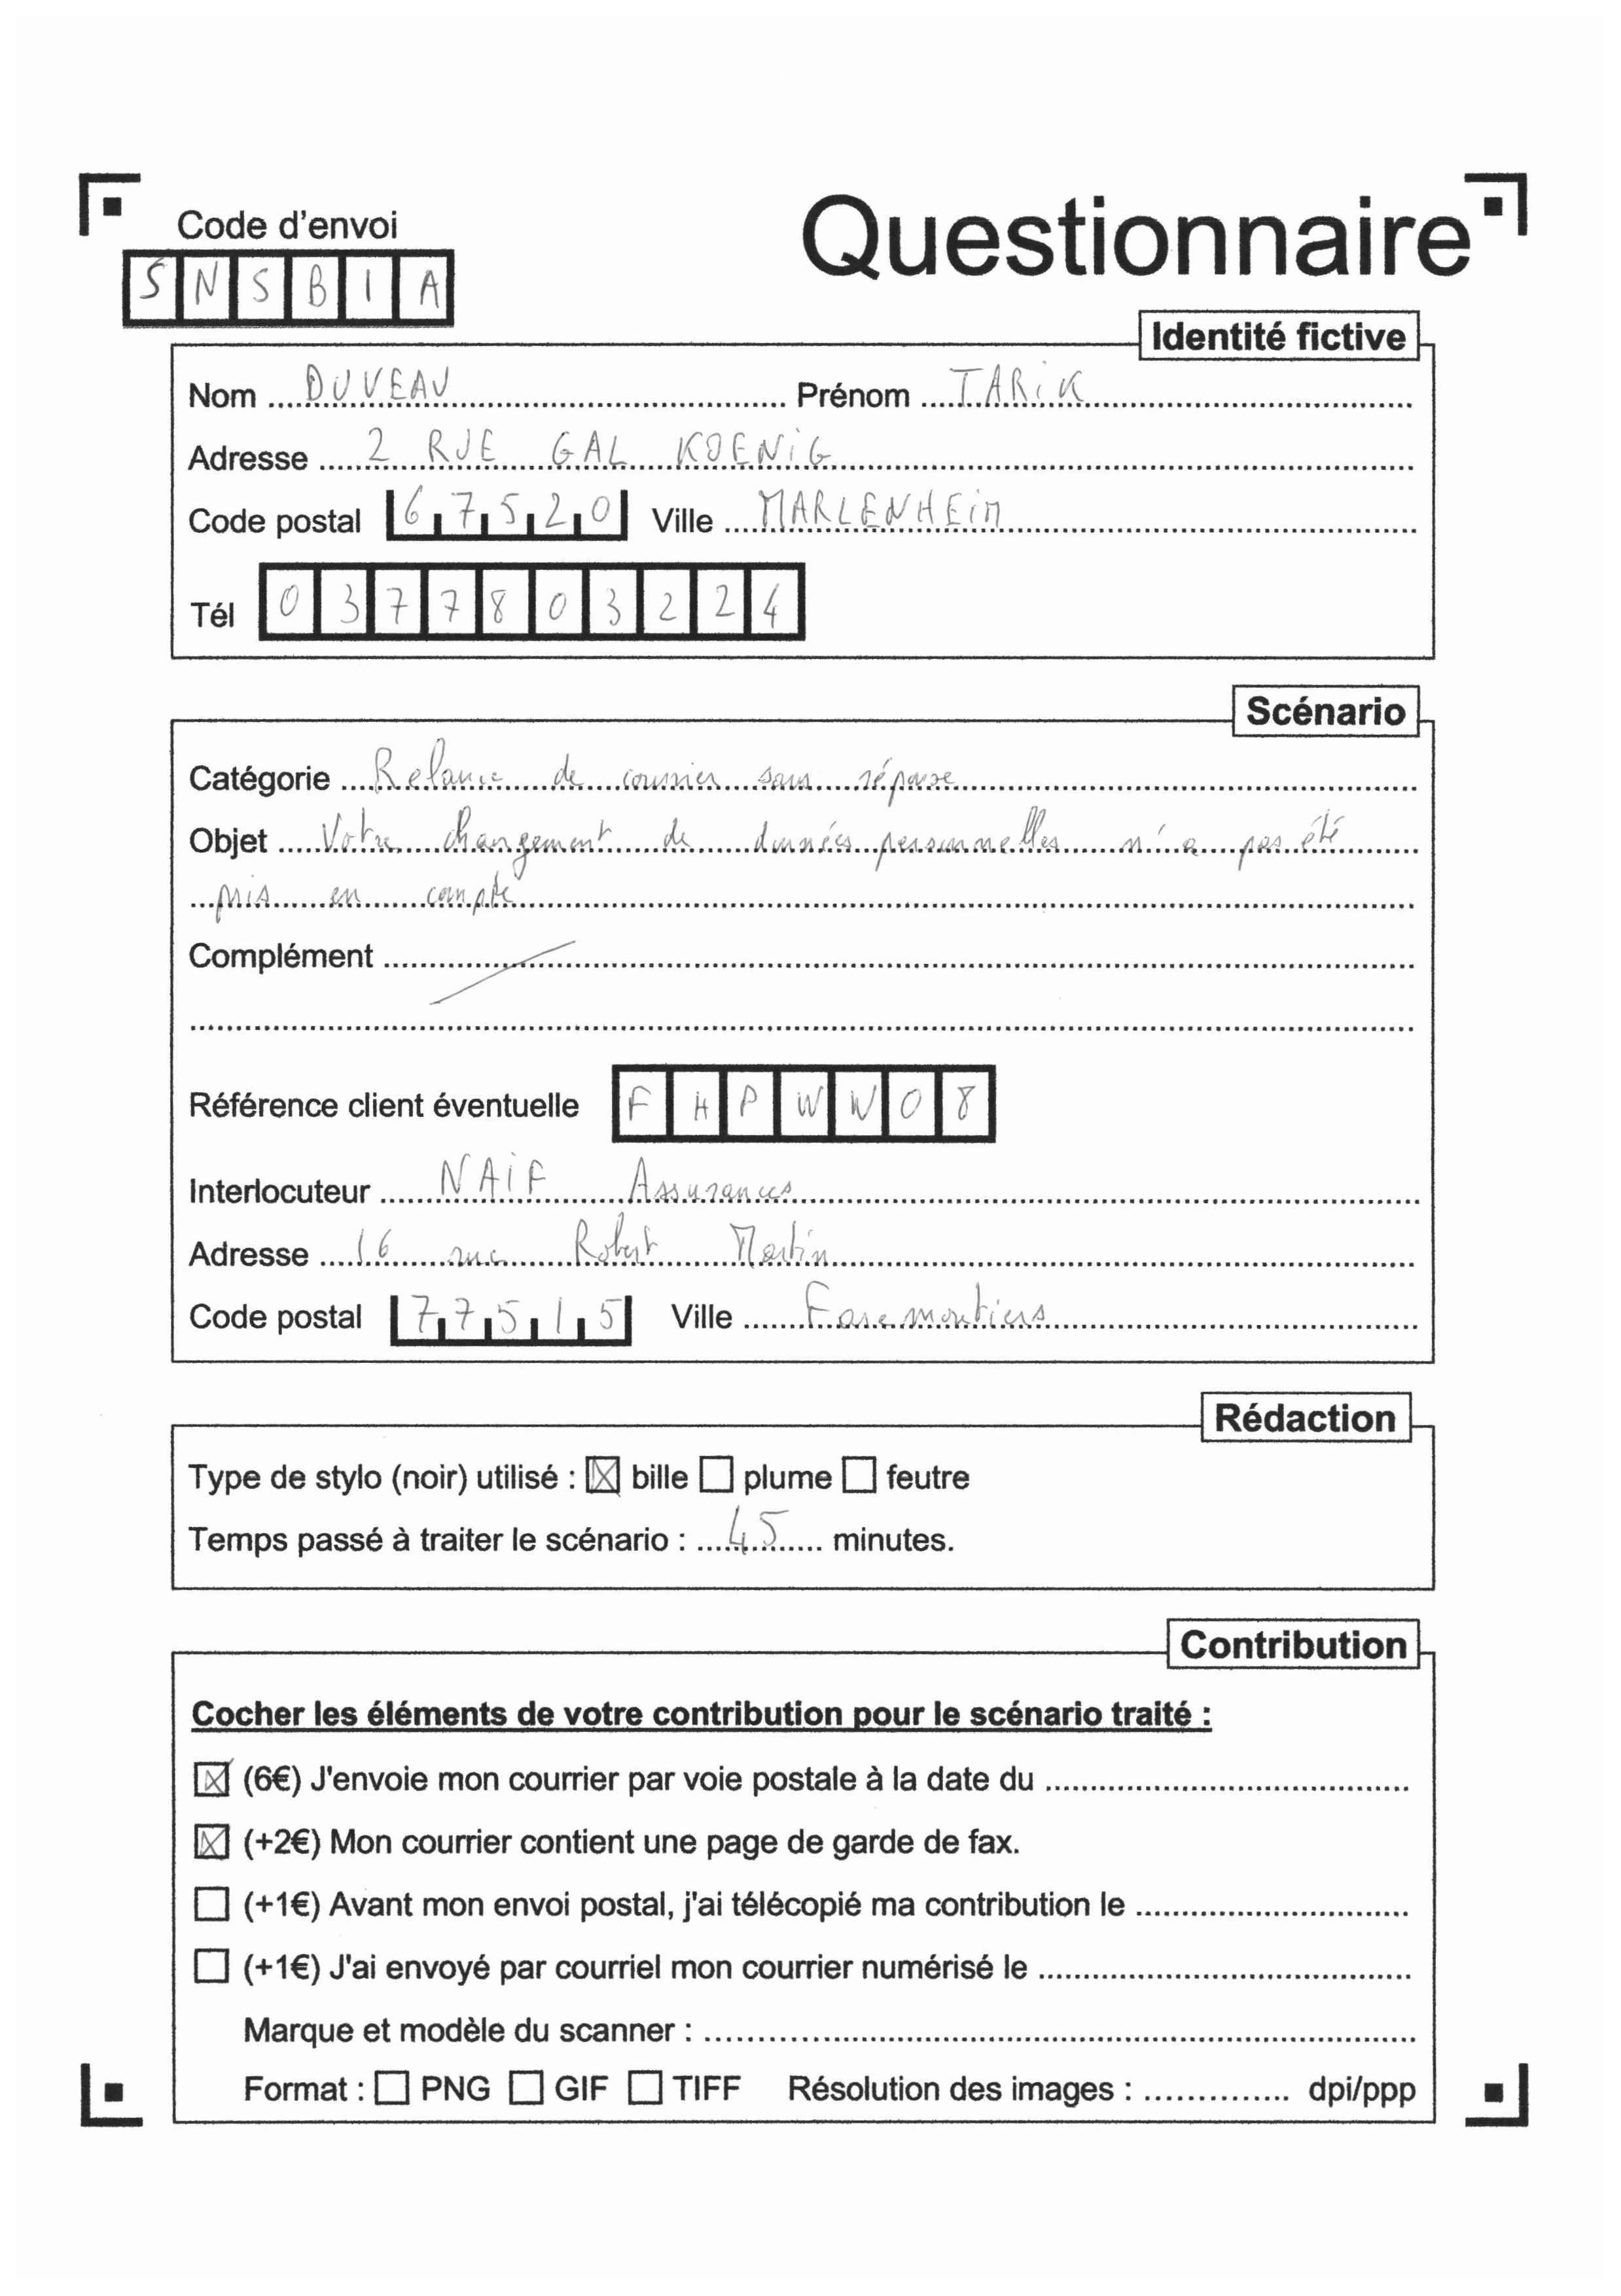 Code d'envoi
Questionnaire
S N S B I A
Identité fictive
Nom DUVEAU Prénom TARiK
Adresse 2 RUE GAL KOENiG
Code postal 67520 Ville MARLENHEiM
Tél 0377803224
Scénario
Catégorie Relance de courrier sans réponse
Objet Votre changement de données personnelles n'a pas été
pris en compte
Complément
Référence client éventuelle FHPWW08
Interlocuteur NAiF Assurances
Adresse 16 rue Robert Martin
Code postal 77515 Ville Faremoutiers
Rédaction
Type de stylo (noir) utilisé : ☒ bille ☐ plume ☐ feutre
Temps passé à traiter le scénario : 45 minutes.
Contribution
Cocher les éléments de votre contribution pour le scénario traité :
☒ (6€) J'envoie mon courrier par voie postale à la date du
☒ (+2€) Mon courrier contient une page de garde de fax.
☐ (+1€) Avant mon envoi postal, j'ai télécopié ma contribution le
☐ (+1€) J'ai envoyé par courriel mon courrier numérisé le
Marque et modèle du scanner :
Format : ☐ PNG ☐ GIF ☐ TIFF Résolution des images : dpi/ppp